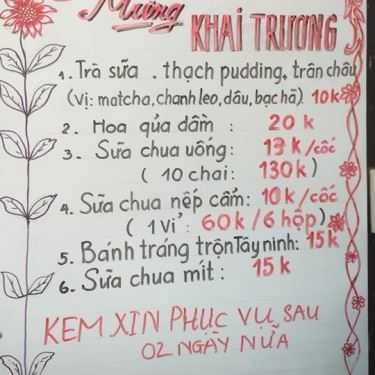 Mừng
KHAI TRƯƠNG
1. Trà sữa . thạch pudding, trân châu
(vị: matcha, chanh leo, dâu, bạc hà). 10k
2. Hoa qủa dầm : 20 k
3. Sữa chua uống: 13 k/cốc
( 10 chai: 130k)
4. Sữa chua nếp cẩm: 10k/cốc
( 1 vỉ: 60k/6 hộp)
5. Bánh tráng trộn Tây ninh: 15k
6. Sữa chua mít: 15k
KEM XIN PHỤC VỤ SAU
02 NGÀY NỮA